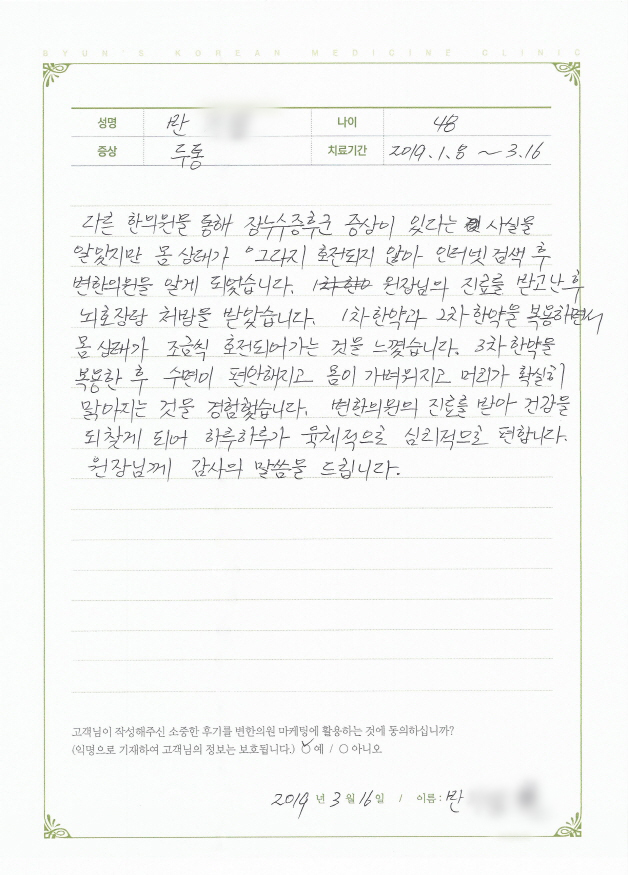 BYUN'S KOREAN MEDICINE CLINIC
성명 만 나이 48
증상 두통 치료기간 2019.1.8 ~ 3.16
다른 한의원을 통해 장누수증후군 증상이 있다는 사실을
알았지만 몸 상태가 그다지 호전되지 않아 인터넷 검색 후
변한의원을 알게 되었습니다. 원장님의 진료를 받고난 후
뇌호장랑 처방을 받았습니다. 1차한약과 2차한약을 복용하면서
몸 상태가 조금씩 호전되어가는 것을 느꼈습니다. 3차한약을
복용한 후 수면이 편안해지고 몸이 가벼워지고 머리가 확실히
맑아지는 것을 경험했습니다. 변한의원의 진료를 받아 건강을
되찾게 되어 하루하루가 육체적으로 심리적으로 편합니다.
원장님께 감사의 말씀을 드립니다.
고객님이 작성해주신 소중한 후기를 변한의원 마케팅에 활용하는 것에 동의하십니까?
(익명으로 기재하여 고객님의 정보는 보호됩니다.) ○ 예 / ○ 아니오
2019 년 3 월 16 일 / 이름 : 만